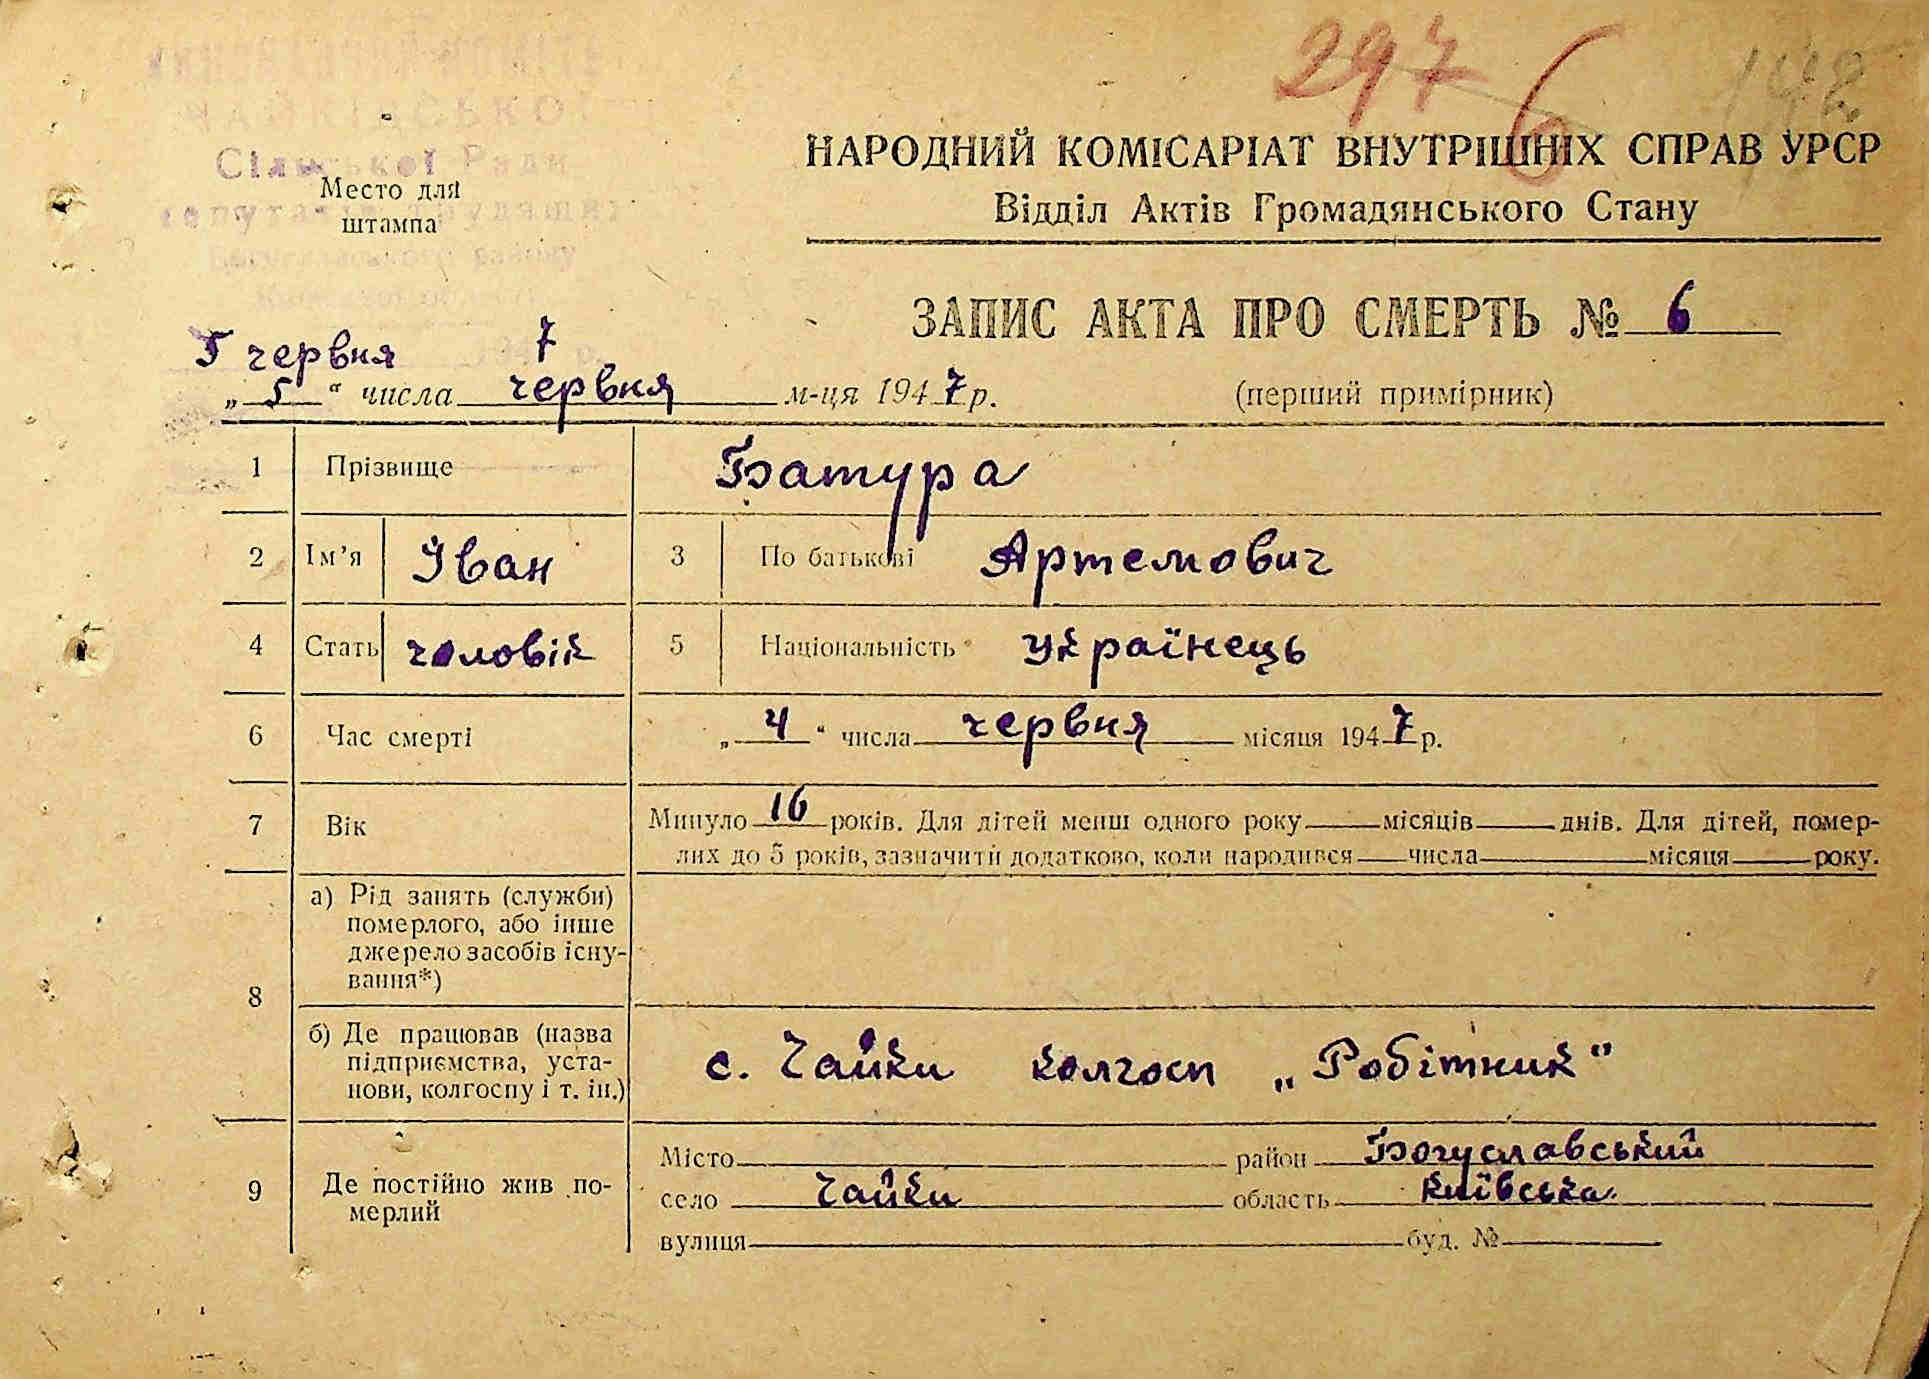 297 6 142
ВИКОНАВЧИЙ КОМІТЕТ
ЧАЙКІВСЬКОЇ
Сільської Ради
депутатів трудящих
Богуславського району
Київської області
Место для
штампа
НАРОДНИЙ КОМІСАРІАТ ВНУТРІШНІХ СПРАВ УРСР
Відділ Актів Громадянського Стану
ЗАПИС АКТА ПРО СМЕРТЬ № 6
5 червня 194 7 р.
„ 5 “ числа червня м-ця 194 7 р.
(перший примірник)
1 Прізвище Батура
2 Ім’я Іван 3 По батькові Артемович
4 Стать чоловік 5 Національність українець
6 Час смерті „ 4 “ числа червня місяця 194 7 р.
7 Вік Минуло 16 років. Для дітей менш одного року місяців днів. Для дітей, помер-
лих до 5 років, зазначити додатково, коли народився числа місяця року.
8 а) Рід занять (служби)
померлого, або інше
джерело засобів існу-
вання*)
б) Де працював (назва
підприємства, уста-
нови, колгоспу і т. ін.)
с. Чайки колгосп „Робітник"
9 Де постійно жив по-
мерлий
Місто район Богуславський
село Чайки область Київська
вулиця буд. №